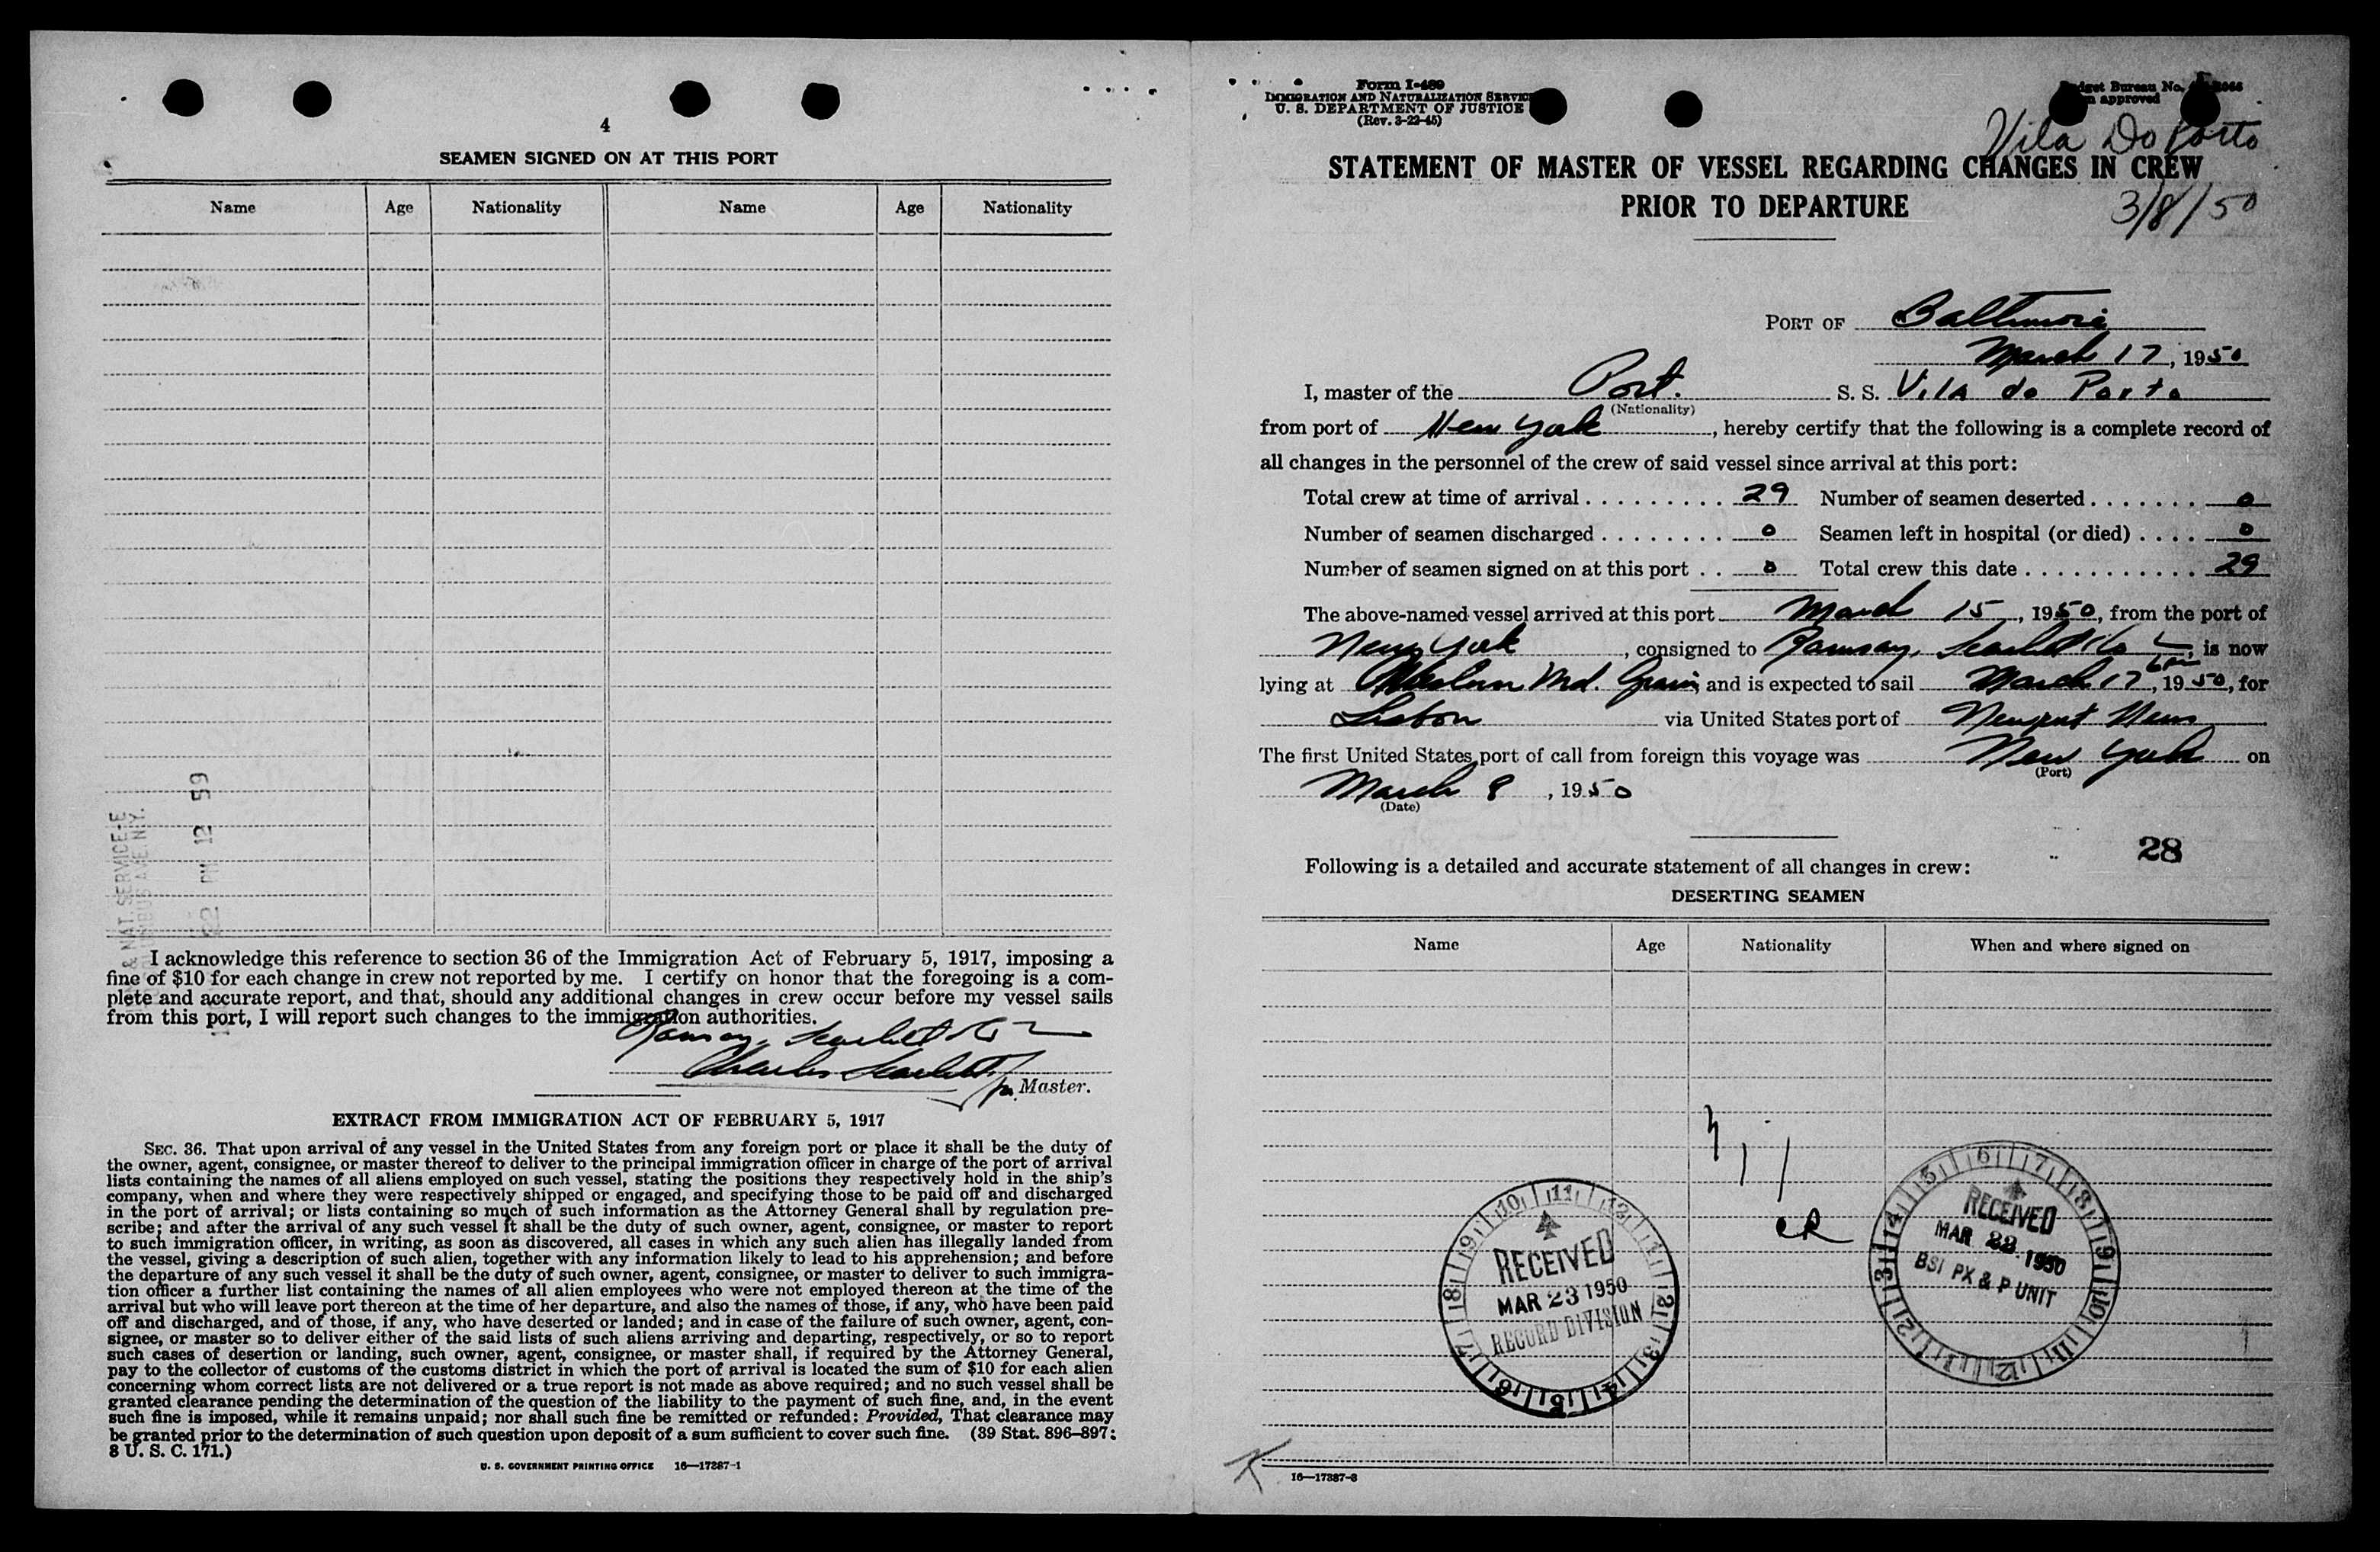 4
SEAMEN SIGNED ON AT THIS PORT
Name Age Nationality Name Age Nationality
& NAT. SERVICE-E
AVE. N.Y.
22 PM 12 59
I acknowledge this reference to section 36 of the Immigration Act of February 5, 1917, imposing a
fine of $10 for each change in crew not reported by me. I certify on honor that the foregoing is a com-
plete and accurate report, and that, should any additional changes in crew occur before my vessel sails
from this port, I will report such changes to the immigration authorities.
Ramsay, Scarlett & Co
Charles Scarlett
for Master.
EXTRACT FROM IMMIGRATION ACT OF FEBRUARY 5, 1917
SEC. 36. That upon arrival of any vessel in the United States from any foreign port or place it shall be the duty of
the owner, agent, consignee, or master thereof to deliver to the principal immigration officer in charge of the port of arrival
lists containing the names of all aliens employed on such vessel, stating the positions they respectively hold in the ship's
company, when and where they were respectively shipped or engaged, and specifying those to be paid off and discharged
in the port of arrival; or lists containing so much of such information as the Attorney General shall by regulation pre-
scribe; and after the arrival of any such vessel it shall be the duty of such owner, agent, consignee, or master to report
to such immigration officer, in writing, as soon as discovered, all cases in which any such alien has illegally landed from
the vessel, giving a description of such alien, together with any information likely to lead to his apprehension; and before
the departure of any such vessel it shall be the duty of such owner, agent, consignee, or master to deliver to such immigra-
tion officer a further list containing the names of all alien employees who were not employed thereon at the time of the
arrival but who will leave port thereon at the time of her departure, and also the names of those, if any, who have been paid
off and discharged, and of those, if any, who have deserted or landed; and in case of the failure of such owner, agent, con-
signee, or master so to deliver either of the said lists of such aliens arriving and departing, respectively, or so to report
such cases of desertion or landing, such owner, agent, consignee, or master shall, if required by the Attorney General,
pay to the collector of customs of the customs district in which the port of arrival is located the sum of $10 for each alien
concerning whom correct lists are not delivered or a true report is not made as above required; and no such vessel shall be
granted clearance pending the determination of the question of the liability to the payment of such fine, and, in the event
such fine is imposed, while it remains unpaid; nor shall such fine be remitted or refunded: Provided, That clearance may
be granted prior to the determination of such question upon deposit of a sum sufficient to cover such fine. (39 Stat. 896–897;
8 U. S. C. 171.)
U. S. GOVERNMENT PRINTING OFFICE 16—17387-1
Form I-489
IMMIGRATION AND NATURALIZATION SERVICE
U. S. DEPARTMENT OF JUSTICE
(Rev. 3-22-45)
Budget Bureau No.
approved
Vila Do Porto
STATEMENT OF MASTER OF VESSEL REGARDING CHANGES IN CREW
PRIOR TO DEPARTURE
3/8/50
PORT OF Baltimore
March 17, 1950
I, master of the Port. S. S. Vila do Porto
(Nationality)
from port of New York, hereby certify that the following is a complete record of
all changes in the personnel of the crew of said vessel since arrival at this port:
Total crew at time of arrival 29 Number of seamen deserted 0
Number of seamen discharged 0 Seamen left in hospital (or died) 0
Number of seamen signed on at this port 0 Total crew this date 29
The above-named vessel arrived at this port March 15, 1950, from the port of
New York, consigned to Ramsay, Scarlett & Co, is now
lying at Western Md. Grain, and is expected to sail March 17 6 pm, 1950, for
Lisbon via United States port of Newport News
The first United States port of call from foreign this voyage was New York on
(Port)
March 8, 1950
(Date)
28
Following is a detailed and accurate statement of all changes in crew:
DESERTING SEAMEN
Name Age Nationality When and where signed on
Nil
RECEIVED
MAR 23 1950
RECORD DIVISION
RECEIVED
MAR 22 1950
BSI PX & P UNIT
K
16—17387-3